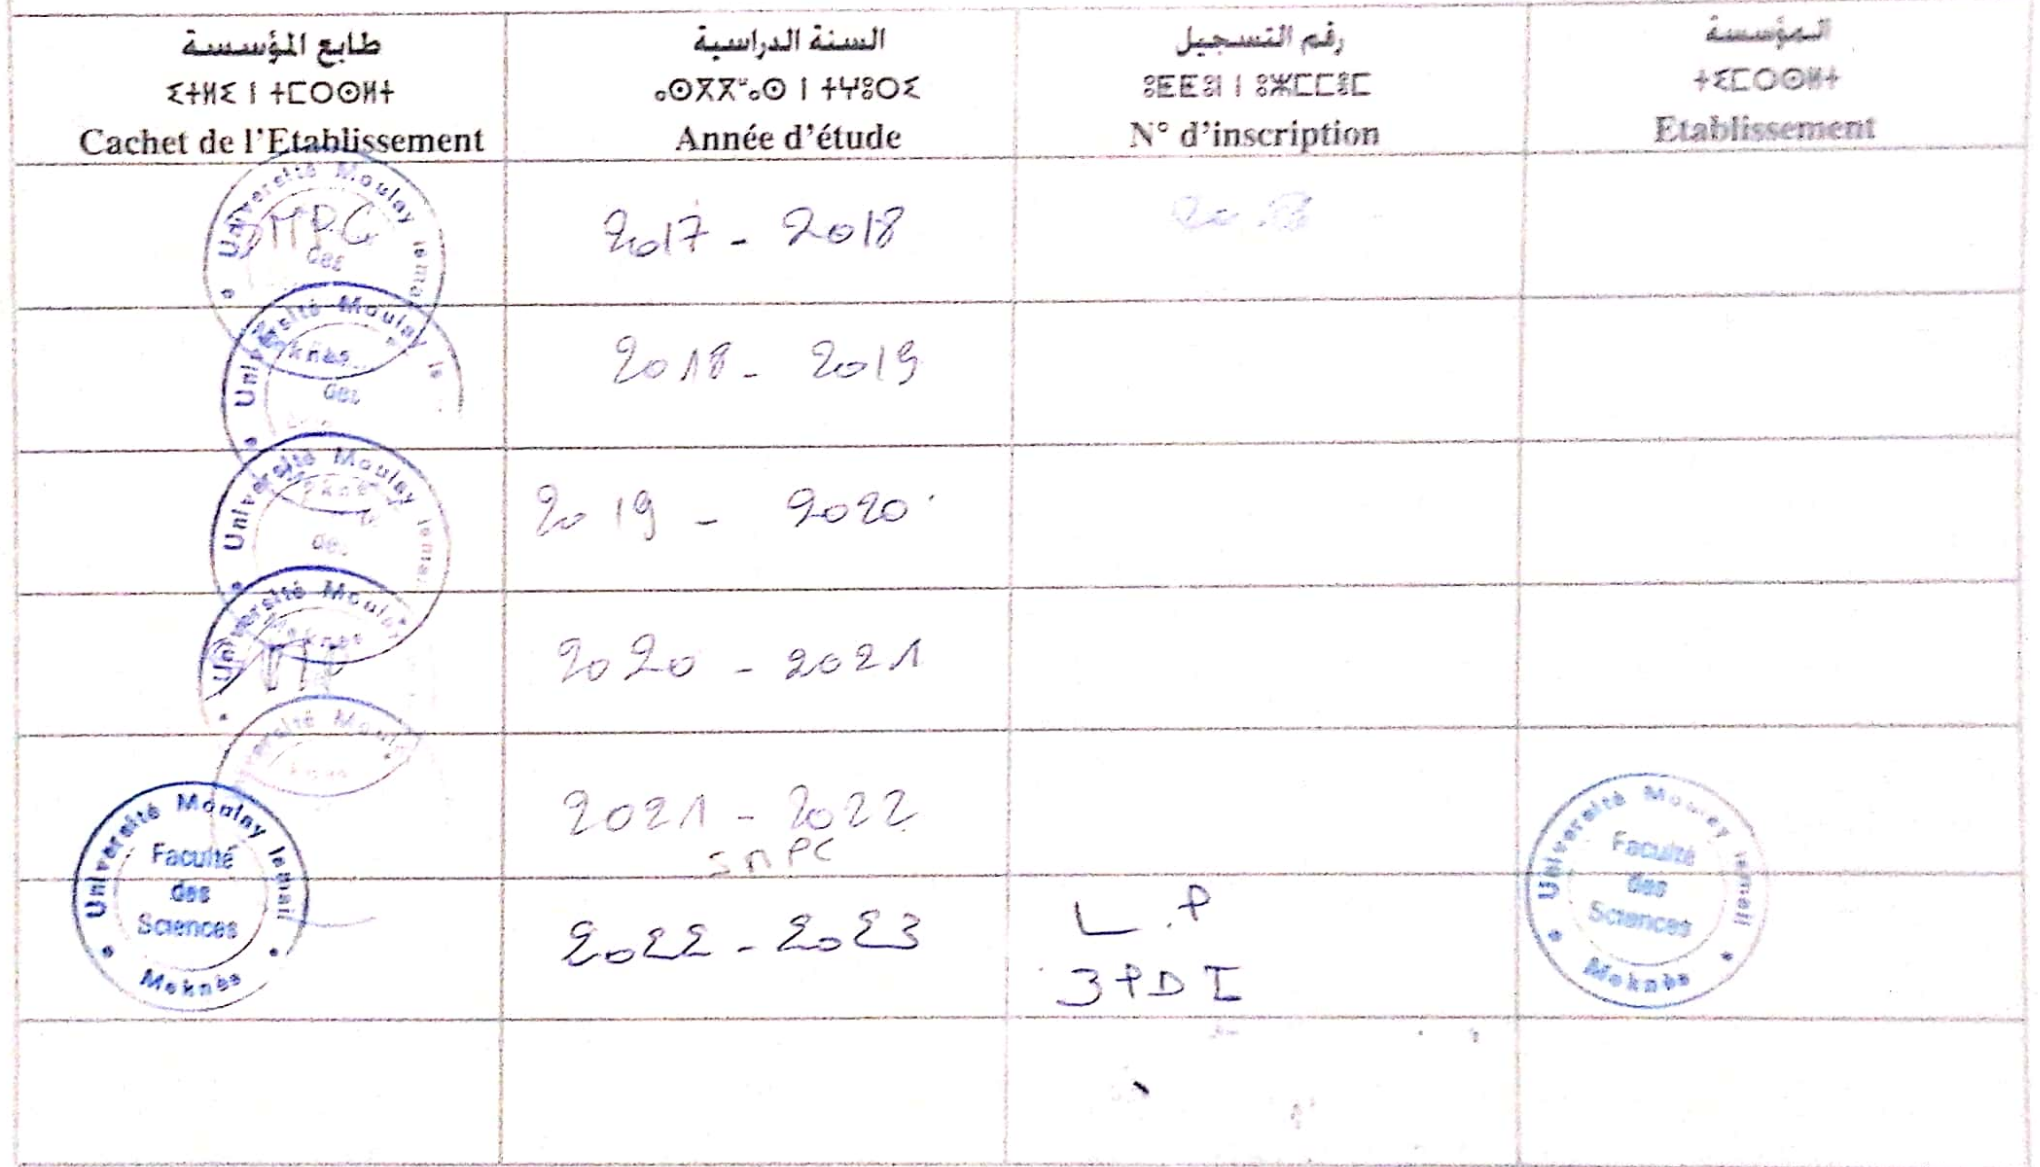 طابع المؤسسة
ⵉⵜⵍⵉ ⵏ ⵜⵎⵔⵙⵍⵜ
Cachet de l'Etablissement
السنة الدراسية
ⴰⵙⴳⴳⵯⴰⵙ ⵏ ⵜⵖⵓⵔⵉ
Année d'étude
رقم التسجيل
ⵓⵟⵟⵓⵏ ⵏ ⵓⵣⵎⵎⵓⵎ
N° d'inscription
المؤسسة
ⵜⵉⵎⵔⵙⵍⵜ
Etablissement
Université Moulay Ismail
SMPC
des
2017 - 2018
Université Moulay
Meknès
des
2018 - 2019
Université Moulay Ismail
des
2019 - 2020
Université Moulay
Meknès
2020 - 2021
2021 - 2022
SMPC
Université Moulay Ismail
Faculté
des
Sciences
Meknès
2022 - 2023
L.P
3PDI
Université Moulay Ismail
Faculté
des
Sciences
Meknès